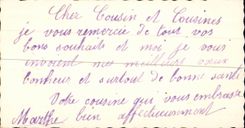 Cher Cousin et Cousines
je vous remercie de tout vos
bons souhaits et moi je vous
envoient mes meilleurs vœux
bonheur et surtout de bonne santé
Votre cousine qui vous embrasse
Marthe bien affectueusement